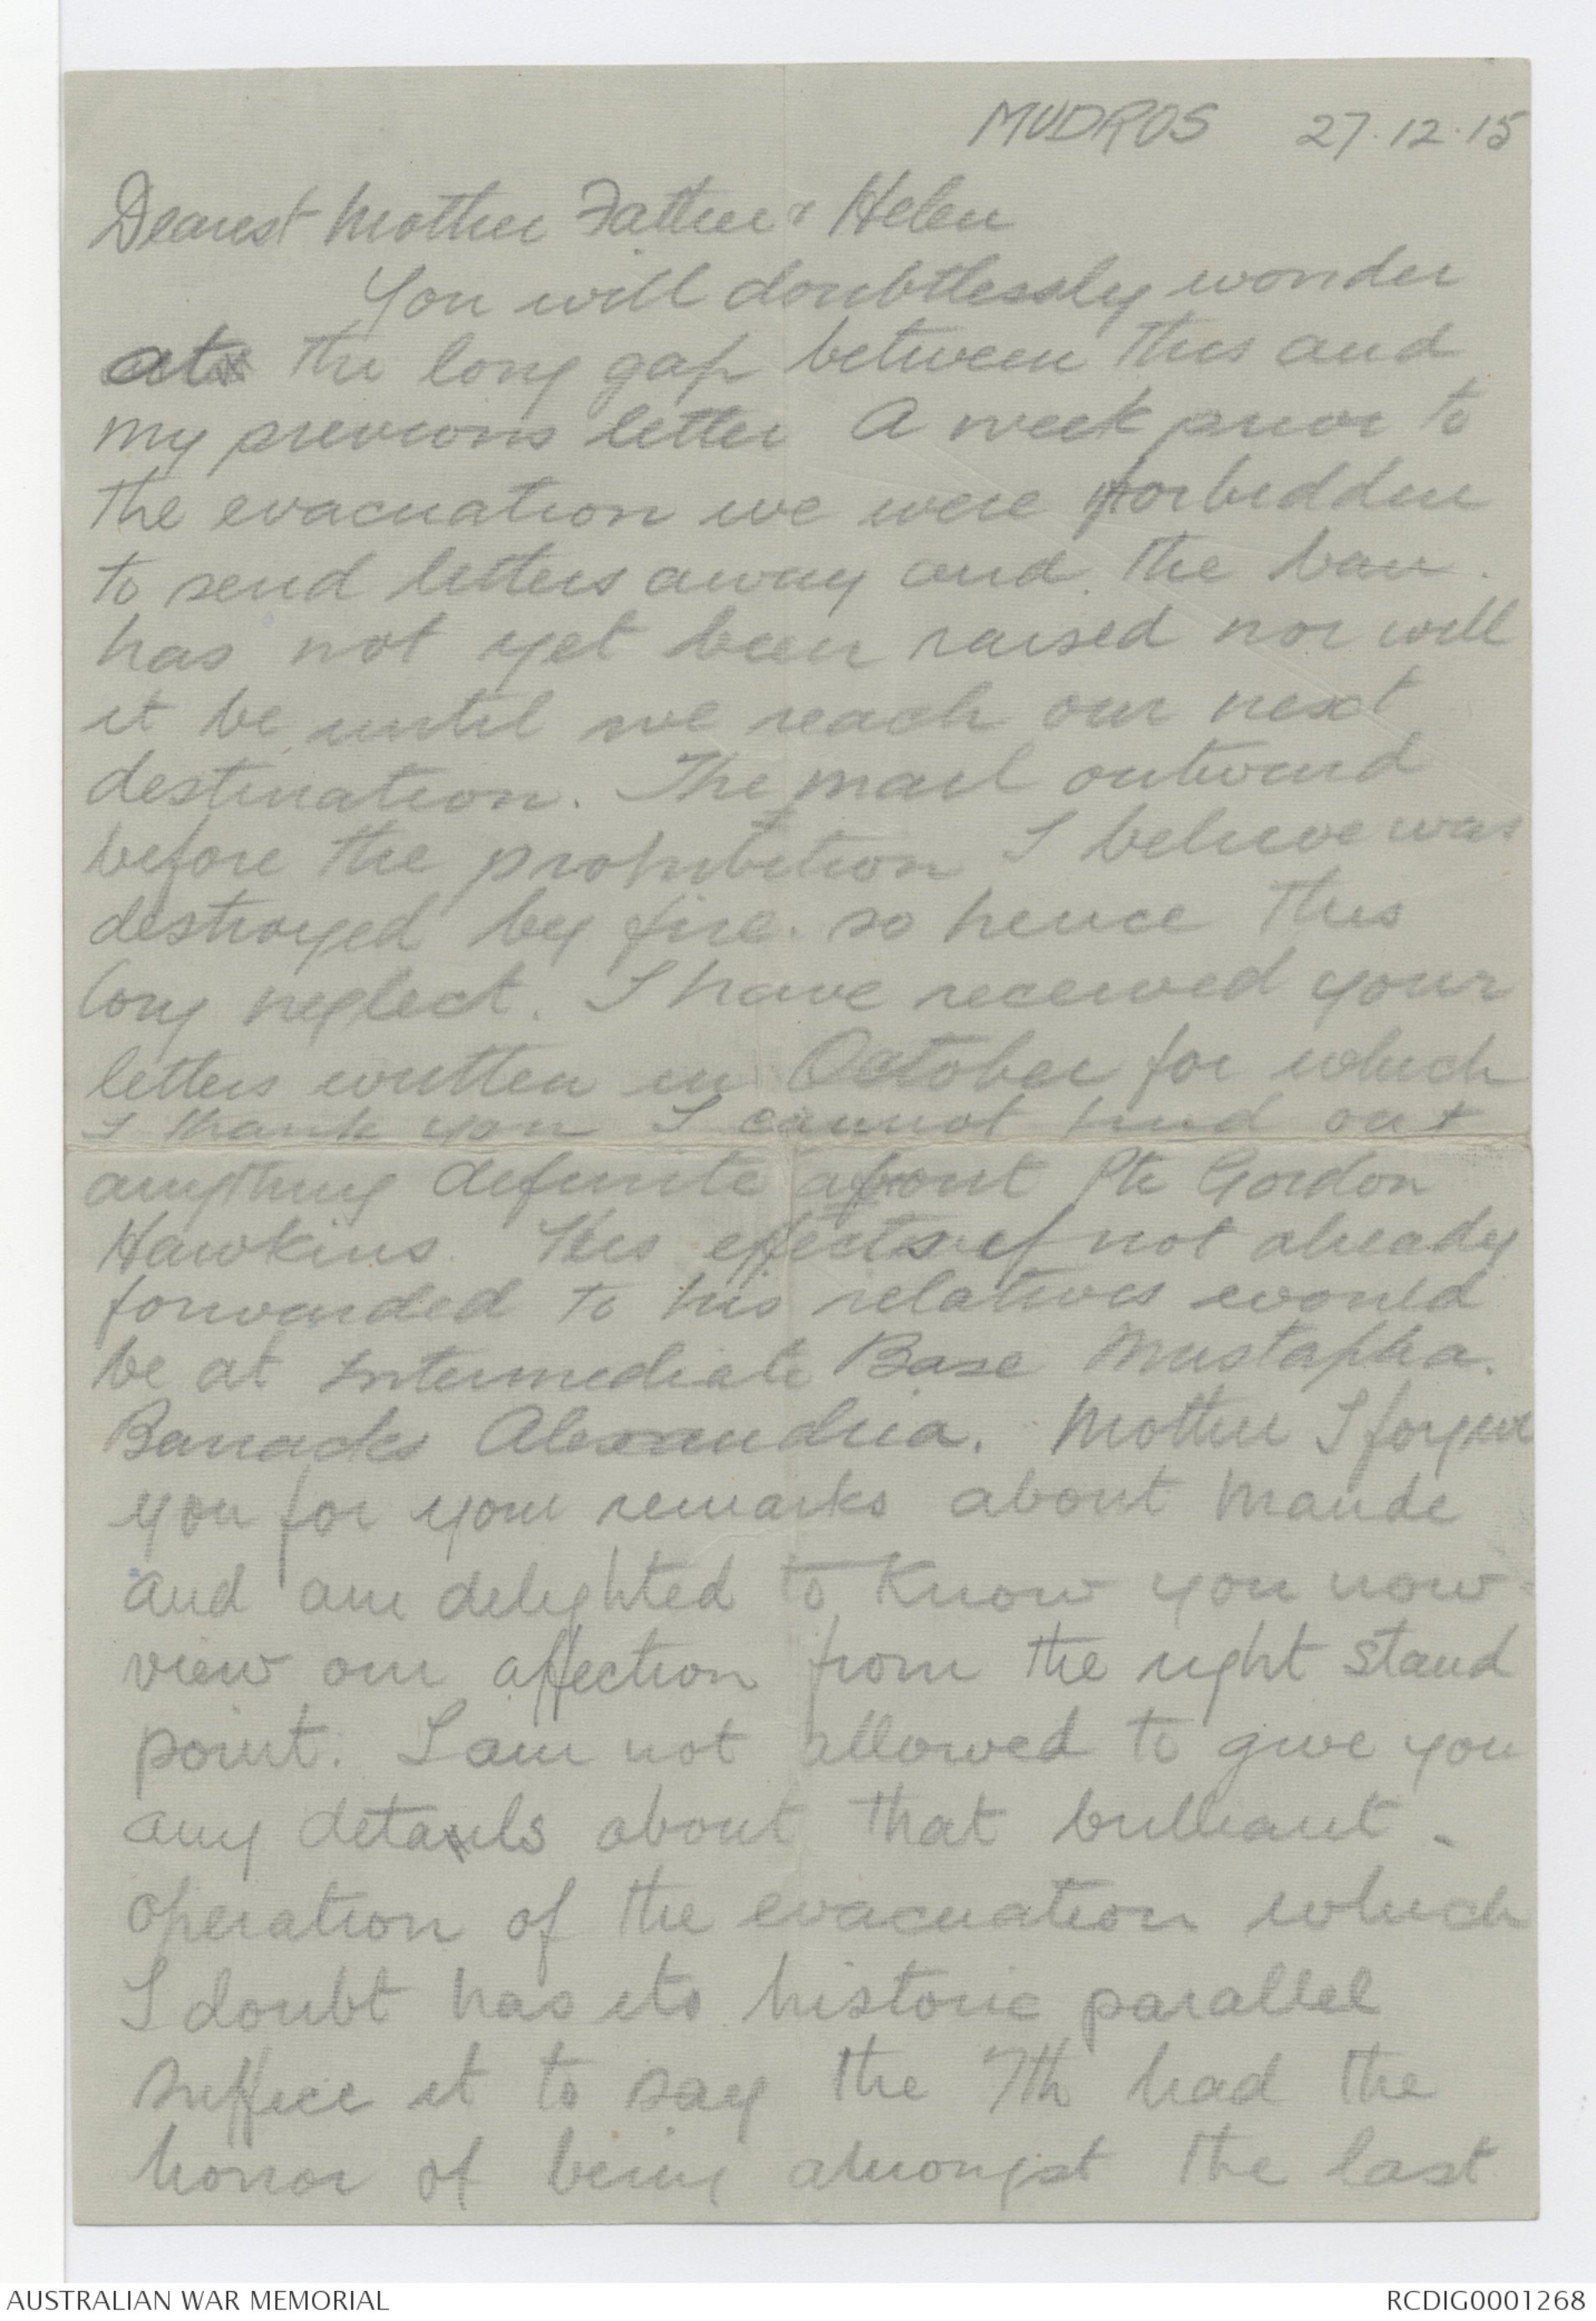 MUDROS 27.12.15
Dearest Mother Father & Helen
You will doubtlessly wonder
at the long gap between this and
my previous letter A week prior to
the evacuation we were forbidden
to send letters away and the ban.
has not yet been raised nor will
it be until we reach our next
destination. The mail outward
before the prohibition I believe was
destroyed by fire. so hence this
long neglect. I have received your
letters written in October for which
I thank you I cannot find out
anything definite about Pte Gordon
Hawkins. His effects if not already
forwarded to his relatives would
be at Intermediate Base Mustapha.
Barracks Alexandria. Mother I forgive
you for your remarks about Maude
and am delighted to know you now
view our affection from the right stand
point. I am not allowed to give you
any details about that brilliant
operation of the evacuation which
I doubt has its historic parallel
suffice it to say the 7th had the
honor of being amongst the last
AUSTRALIAN WAR MEMORIAL
RCDIG0001268